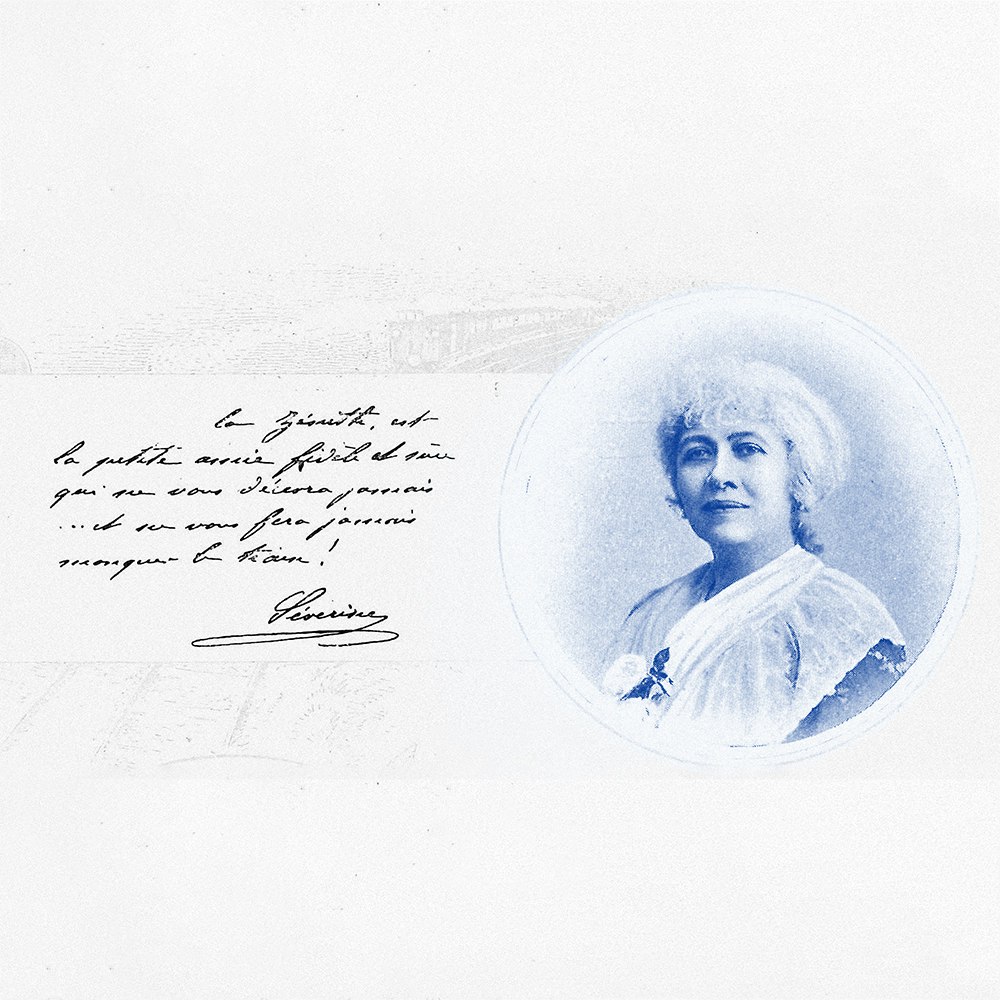 La Zénith, est
la petite amie fidèle et sûre
qui ne vous décevra jamais
...et ne vous fera jamais
manquer le train !
Séverine